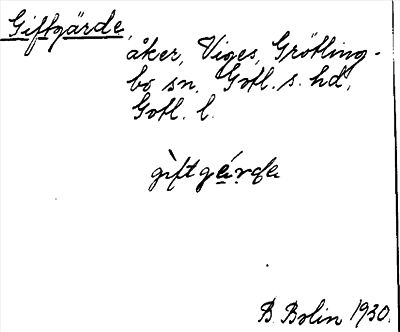 Giftgärde,
åker, Viges, Grötling-
bo sn, Gotl. s. hd,
Gotl. l.
gìftgä́rde
B. Bolin 1930.